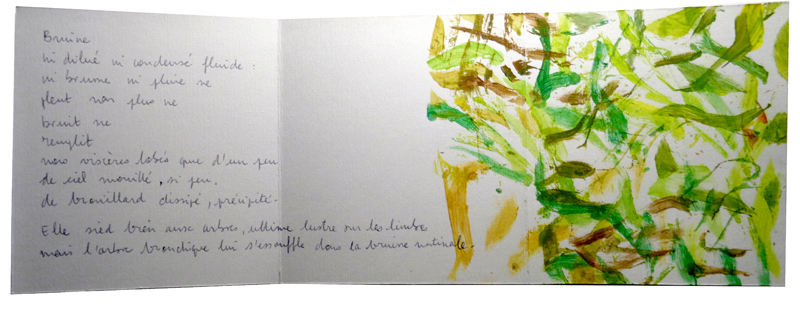 Bruine
ni dilué ni condensé fluide :
ni brume ni pluie ne
pleut non plus ne
bruit ne
remplit
nos viscères lobés que d'un peu
de ciel mouillé, si peu,
de brouillard dissipé, précipité.
Elle sied bien aux arbres, ultime lustre sur les limbes
mais l'arbre bronchique lui s'essouffle dans la bruine matinale.